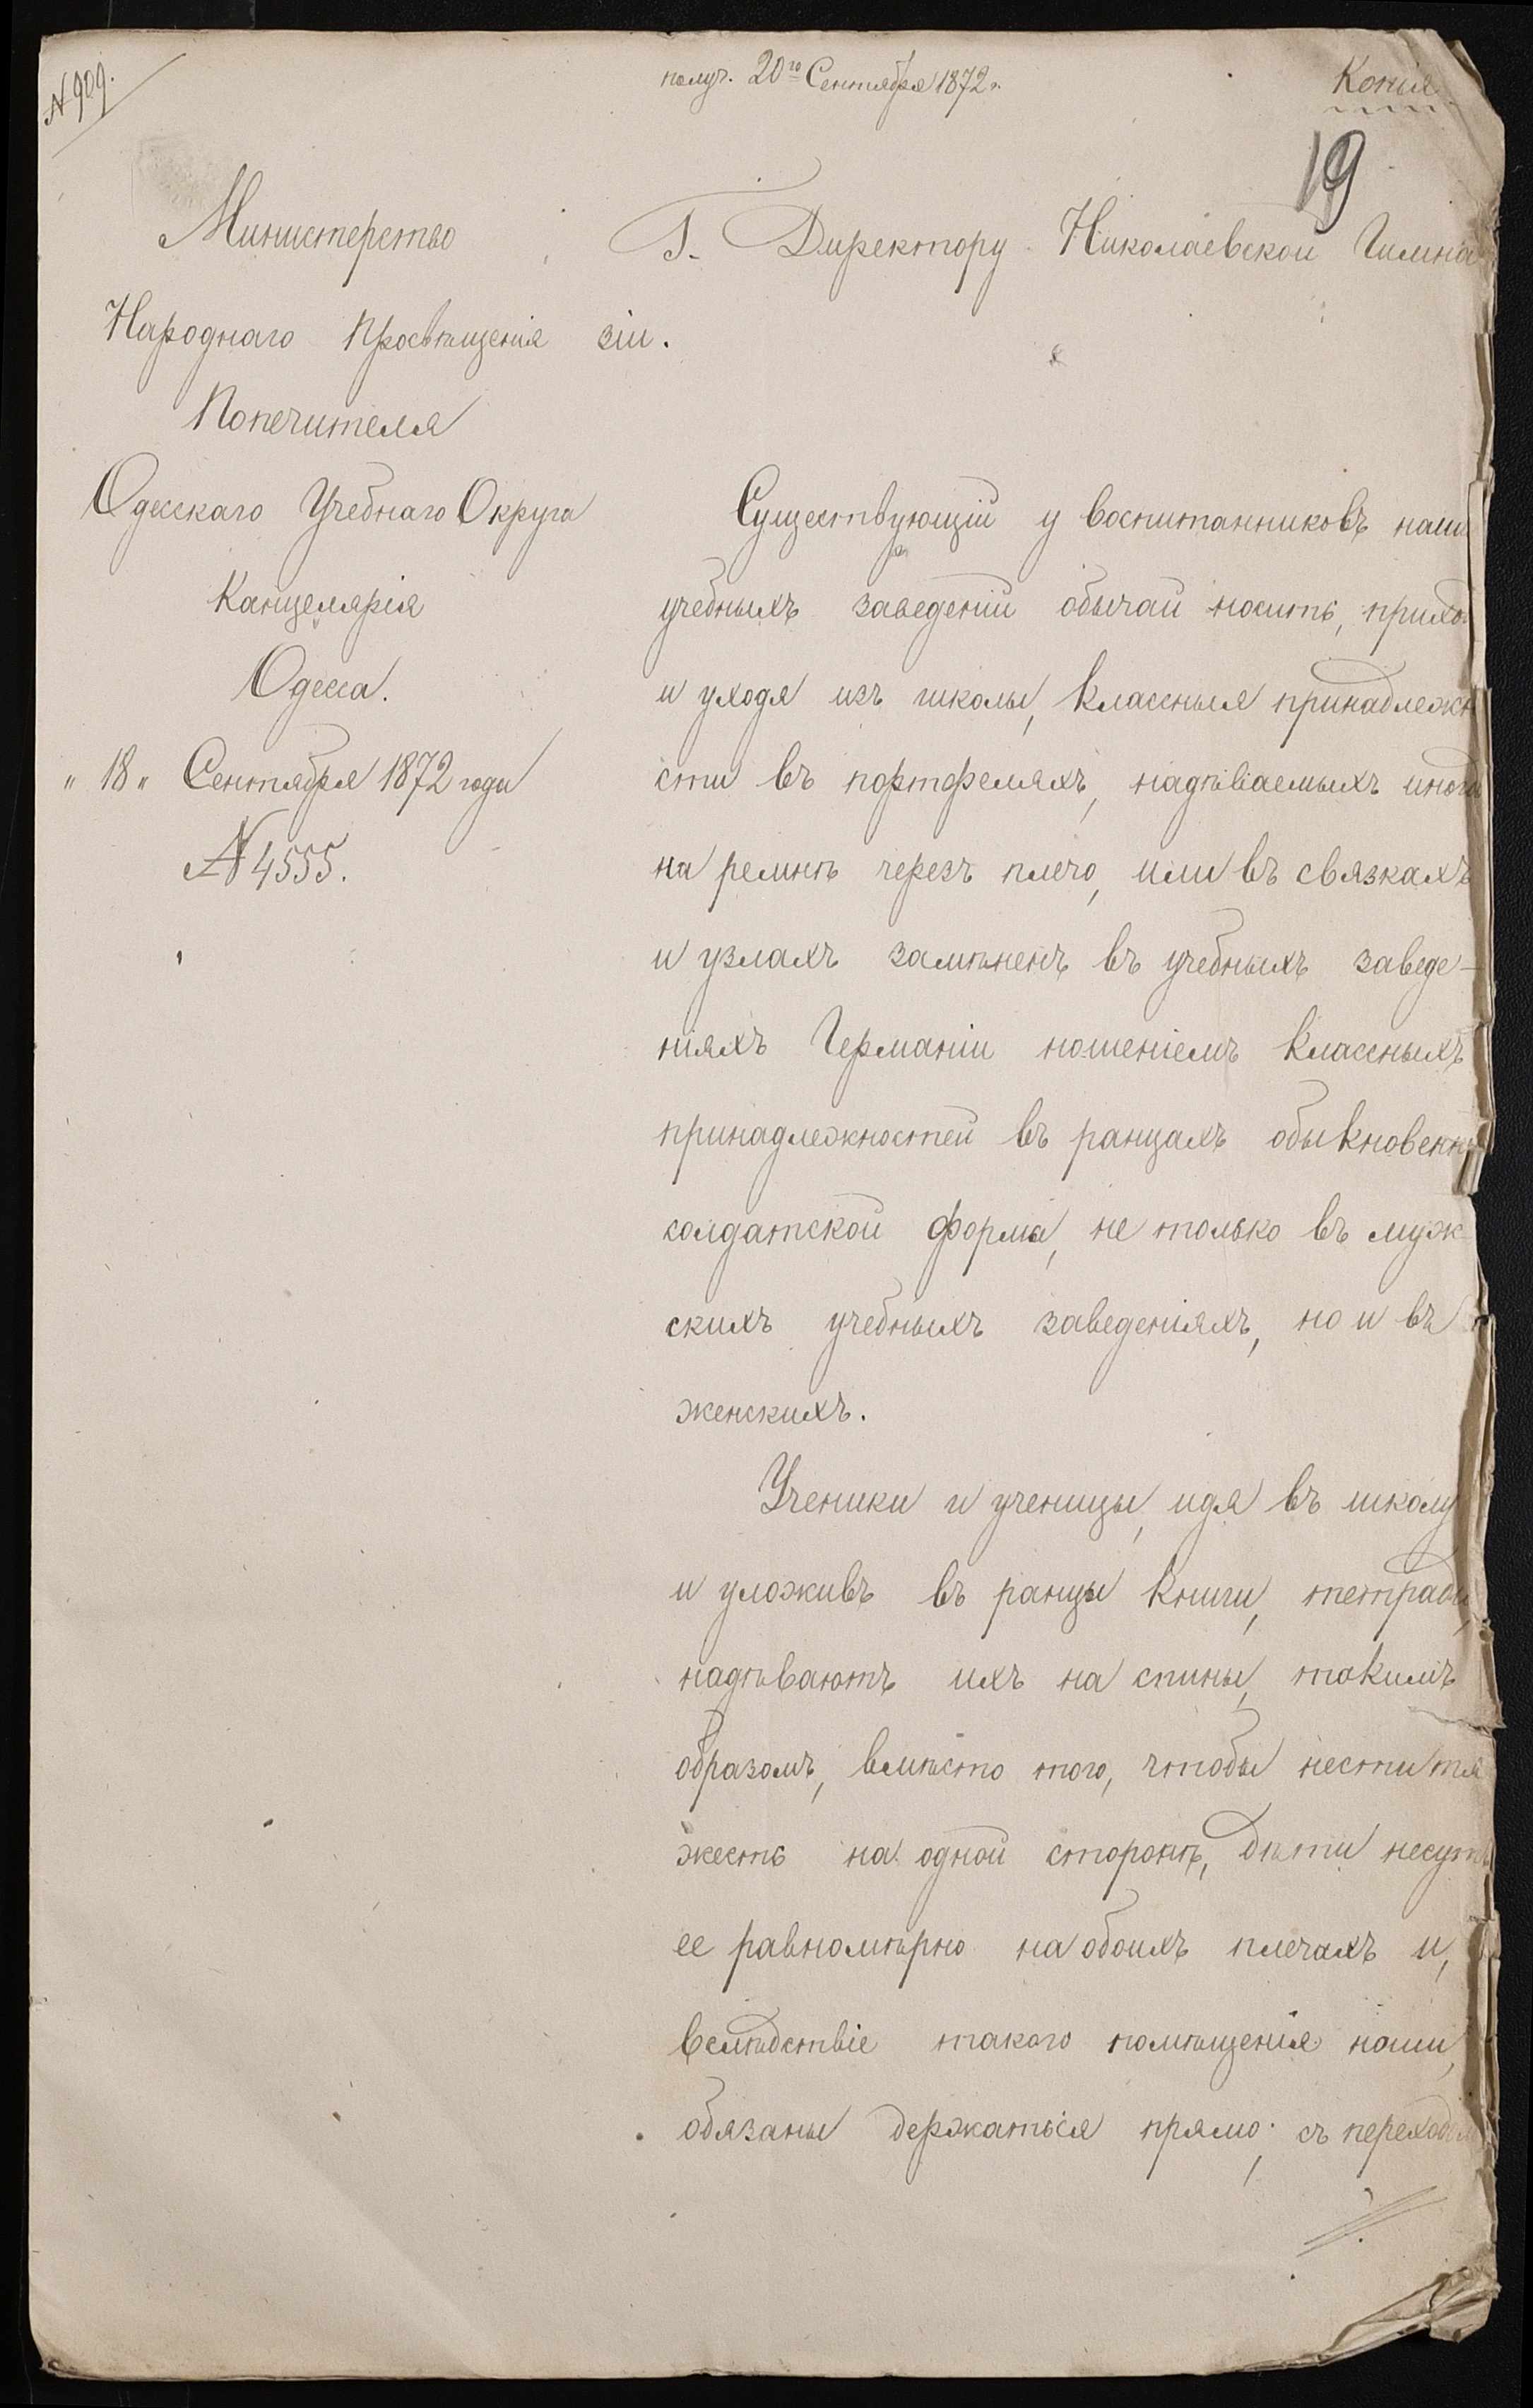 N 909.
получ. 20го Сентября 1872 г.
Копія
19
Министерство
Народнаго Просвѣщенія
Попечителя
Одесскаго Учебнаго Округа
Канцелярія
Одесса.
„ 18 „ Сентября 1872 года
N 4555.
Г. Директору Николаевской Гимна
зіи.
Существующій у воспитанниковъ наши
учебныхъ заведеній обычай носить, прихо
и уходя изъ школы, классныя принадлежн
сти въ портфеляхъ, надѣваемыхъ иногда
на ремнѣ черезъ плечо, или въ связкахъ
и узлахъ замѣненъ въ учебныхъ заведе-
ніяхъ Германіи ношеніемъ классныхъ
принадлежностей въ ранцахъ обыкновенн
солдатской формы, не только въ муж
скихъ учебныхъ заведеніяхъ, но и въ
женскихъ.
Ученики и ученицы, идя въ школу
и уложивъ въ ранцы книги, тетради,
надѣваютъ ихъ на спины, такимъ
образомъ, вмѣсто того, чтобы нести тя
жесть на одной сторонѣ, дѣти несутъ
ее равномѣрно на обоихъ плечахъ и,
вслѣдствіе такого помѣщенія ноши,
обязаны держаться прямо; съ переходом